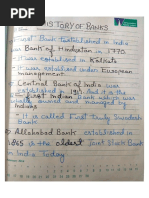 HISTORY OF BANKS
first Bank established in India
Bank of Hindustan in 1770.
It was established in Kolkata
It was established under European
management.
Central Bank of India was
established in 1911. And it is the
first Indian bank which is
wholly owned and managed by
Indians.
It is called as First truly Swadeshi
Bank.
Allahabad Bank established in
1865 is the oldest Joint Stock Bank
India Today